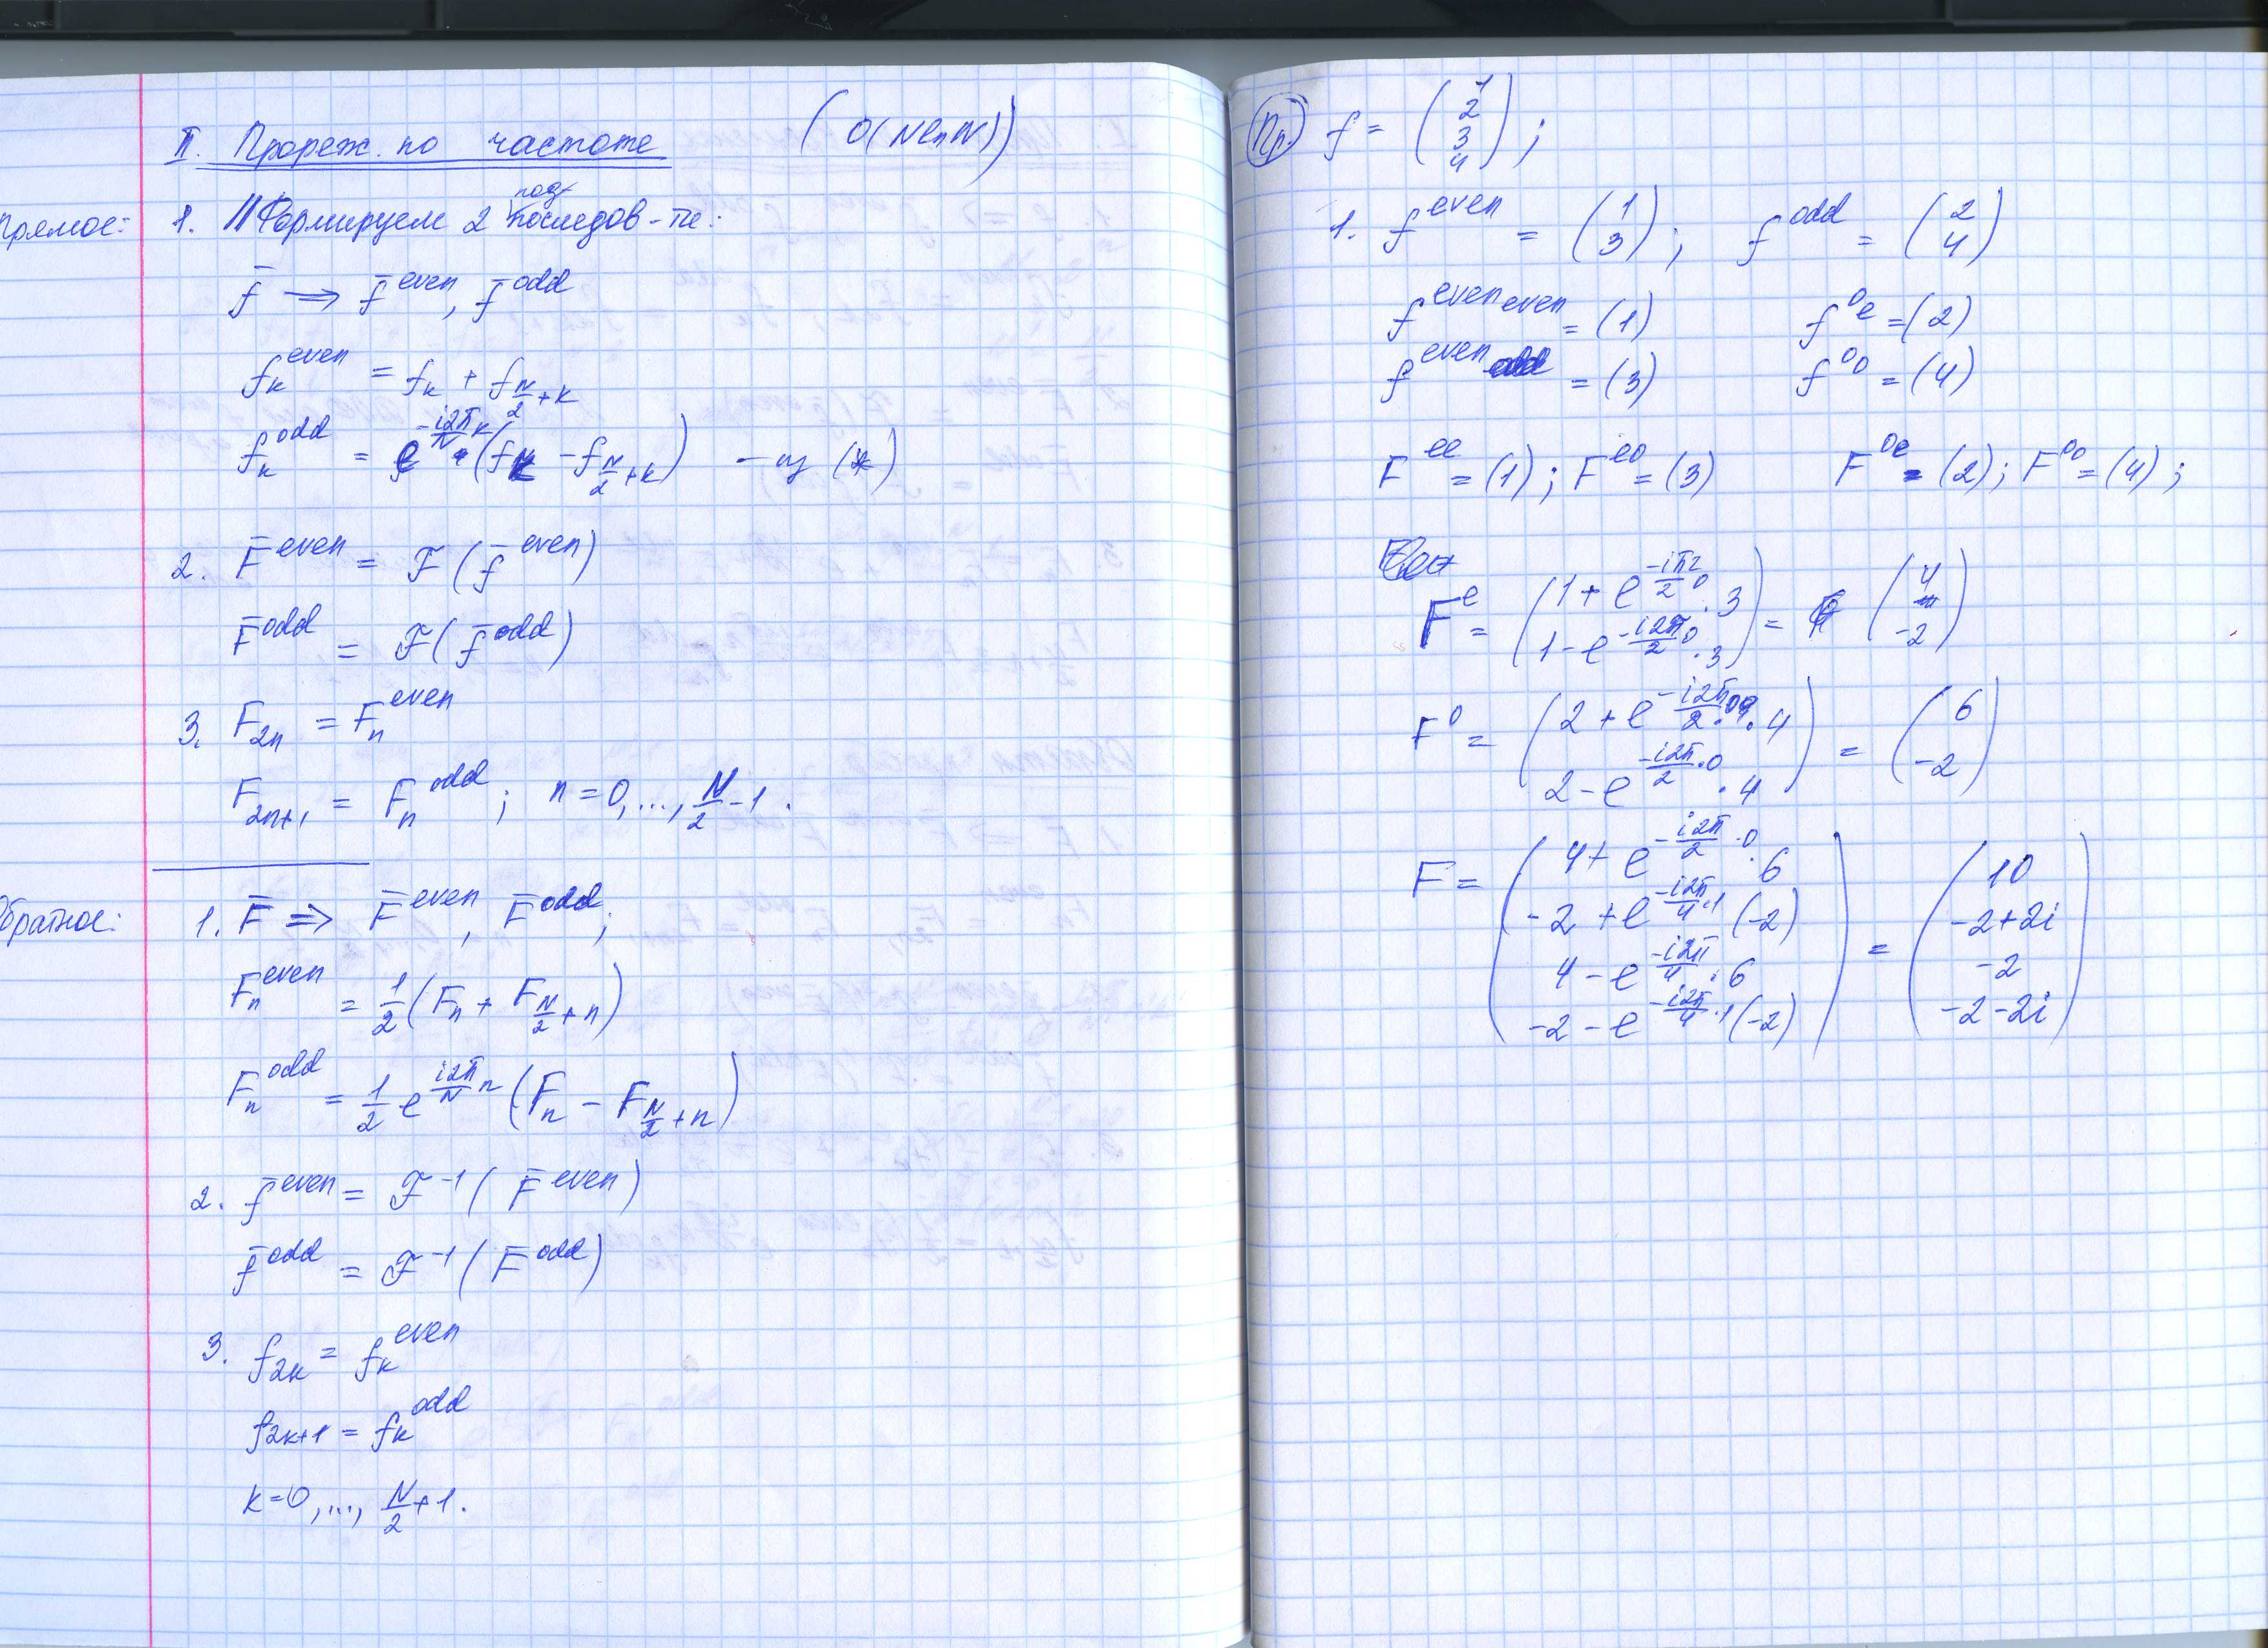 II. Прореж. по частоте (O(N ln N))
Прямое: 1. Формируем 2 подпоследов-ти:
f̄ ⟹ f̄^even, f̄^odd
f_k^even = f_k + f_{N/2+k}
f_k^odd = e^{-i2π/N k} · (f_k - f_{N/2+k}) - из (*)
2. F̄^even = ℱ(f̄^even)
F̄^odd = ℱ(f̄^odd)
3. F_{2n} = F_n^even
F_{2n+1} = F_n^odd; n = 0, ..., N/2 - 1.
Обратное: 1. F̄ ⟹ F̄^even, F̄^odd;
F_n^even = 1/2 (F_n + F_{N/2+n})
F_n^odd = 1/2 e^{i2π/N n} (F_n - F_{N/2+n})
2. f̄^even = ℱ^{-1}(F̄^even)
f̄^odd = ℱ^{-1}(F̄^odd)
3. f_{2k} = f_k^even
f_{2k+1} = f_k^odd
k=0, ..., N/2 + 1.
Пр. f = (1
2
3
4);
1. f^even = (1 3); f^odd = (2 4)
f^{even even} = (1) f^{oe} = (2)
f^{even odd} = (3) f^{oo} = (4)
F^{ee} = (1); F^{eo} = (3) F^{oe} = (2); F^{oo} = (4);
F^e = (1 + e^{-iπ2/2 0} · 3
1 - e^{-i2π/2 0} · 3) = (4
-2)
F^o = (2 + e^{-i2π/2 · 0} · 4
2 - e^{-i2π/2 · 0} · 4) = (6
-2)
F = (4 + e^{-i2π/2 · 0} · 6
-2 + e^{-i2π/4 · 1} (-2)
4 - e^{-i2π/4} · 6
-2 - e^{-i2π/4 · 1} (-2)) = (10
-2+2i
-2
-2-2i)